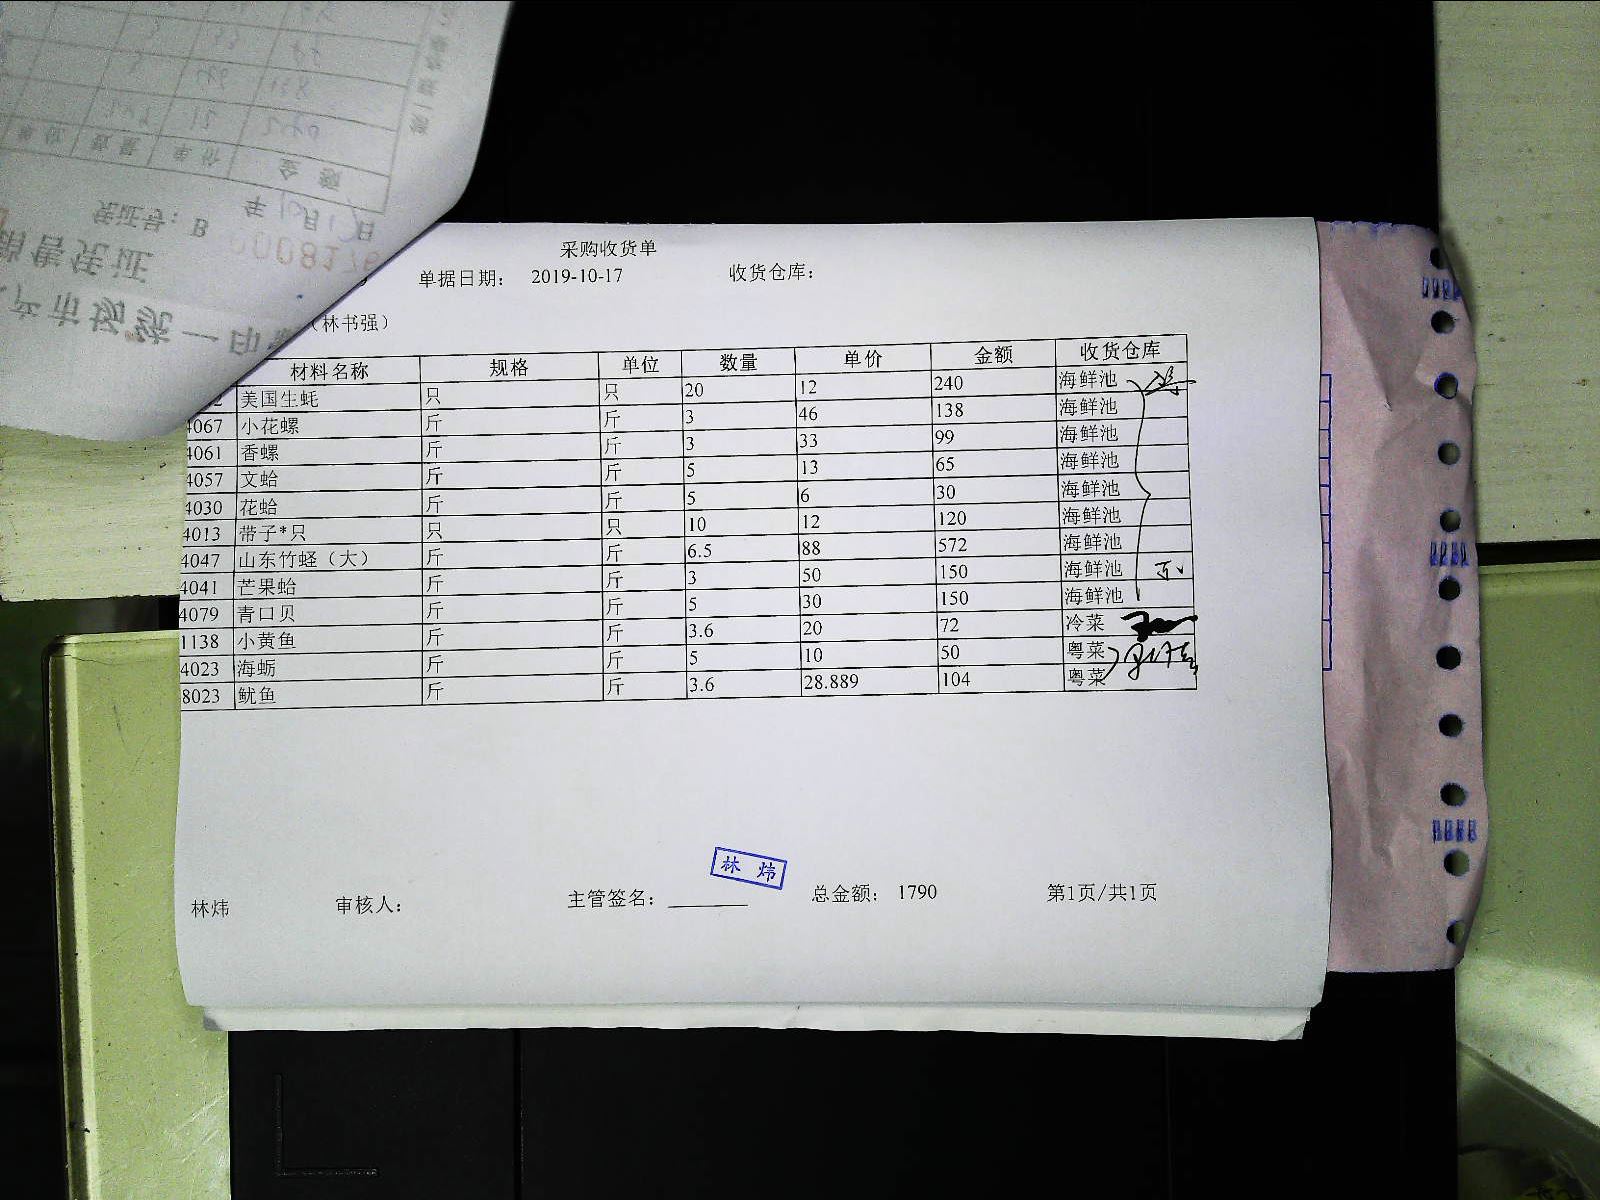 采购收货单
单据日期： 2019-10-17 收货仓库：
（林书强）
材料名称 规格 单位 数量 单价 金额 收货仓库
2 美国生蚝 只 只 20 12 240 海鲜池
4067 小花螺 斤 斤 3 46 138 海鲜池
4061 香螺 斤 斤 3 33 99 海鲜池
4057 文蛤 斤 斤 5 13 65 海鲜池
4030 花蛤 斤 斤 5 6 30 海鲜池
4013 带子*只 只 只 10 12 120 海鲜池
4047 山东竹蛏（大） 斤 斤 6.5 88 572 海鲜池
4041 芒果蛤 斤 斤 3 50 150 海鲜池
4079 青口贝 斤 斤 5 30 150 海鲜池
1138 小黄鱼 斤 斤 3.6 20 72 冷菜
4023 海蛎 斤 斤 5 10 50 粤菜
8023 鱿鱼 斤 斤 3.6 28.889 104 粤菜
林炜
林炜 审核人： 主管签名： 总金额： 1790 第1页/共1页
产市场统一印
销售凭证
0008176
凭证号：B 年10月17日
数量 单价 金额